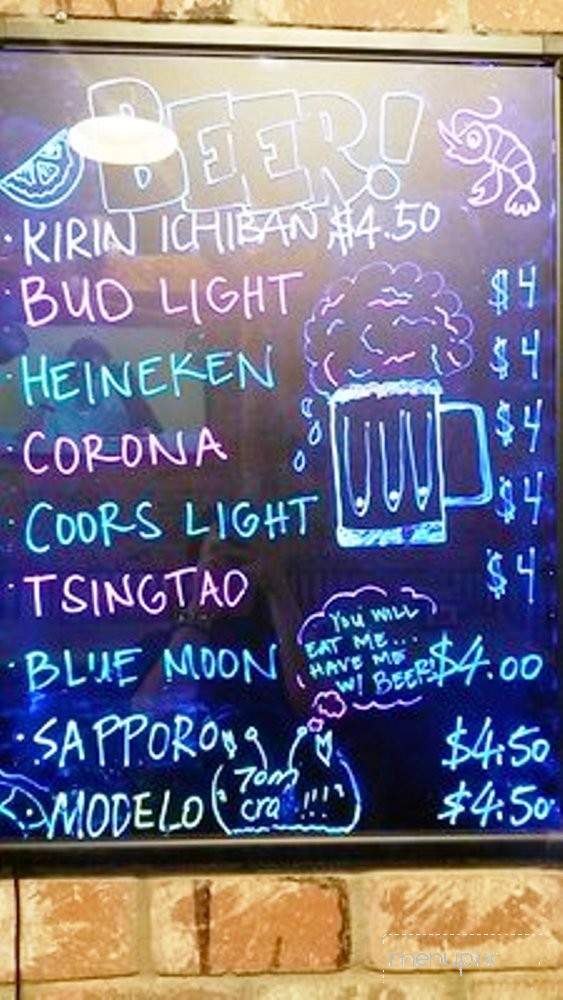 BEER!
· KIRIN ICHIBAN $4.50
· BUD LIGHT $4
· HEINEKEN $4
· CORONA $4
· COORS LIGHT $4
· TSINGTAO $4
YOU WILL
EAT ME...
HAVE ME
W/ BEER!
· BLUE MOON $4.00
· SAPPORO $4.50
· MODELO $4.50
menupix